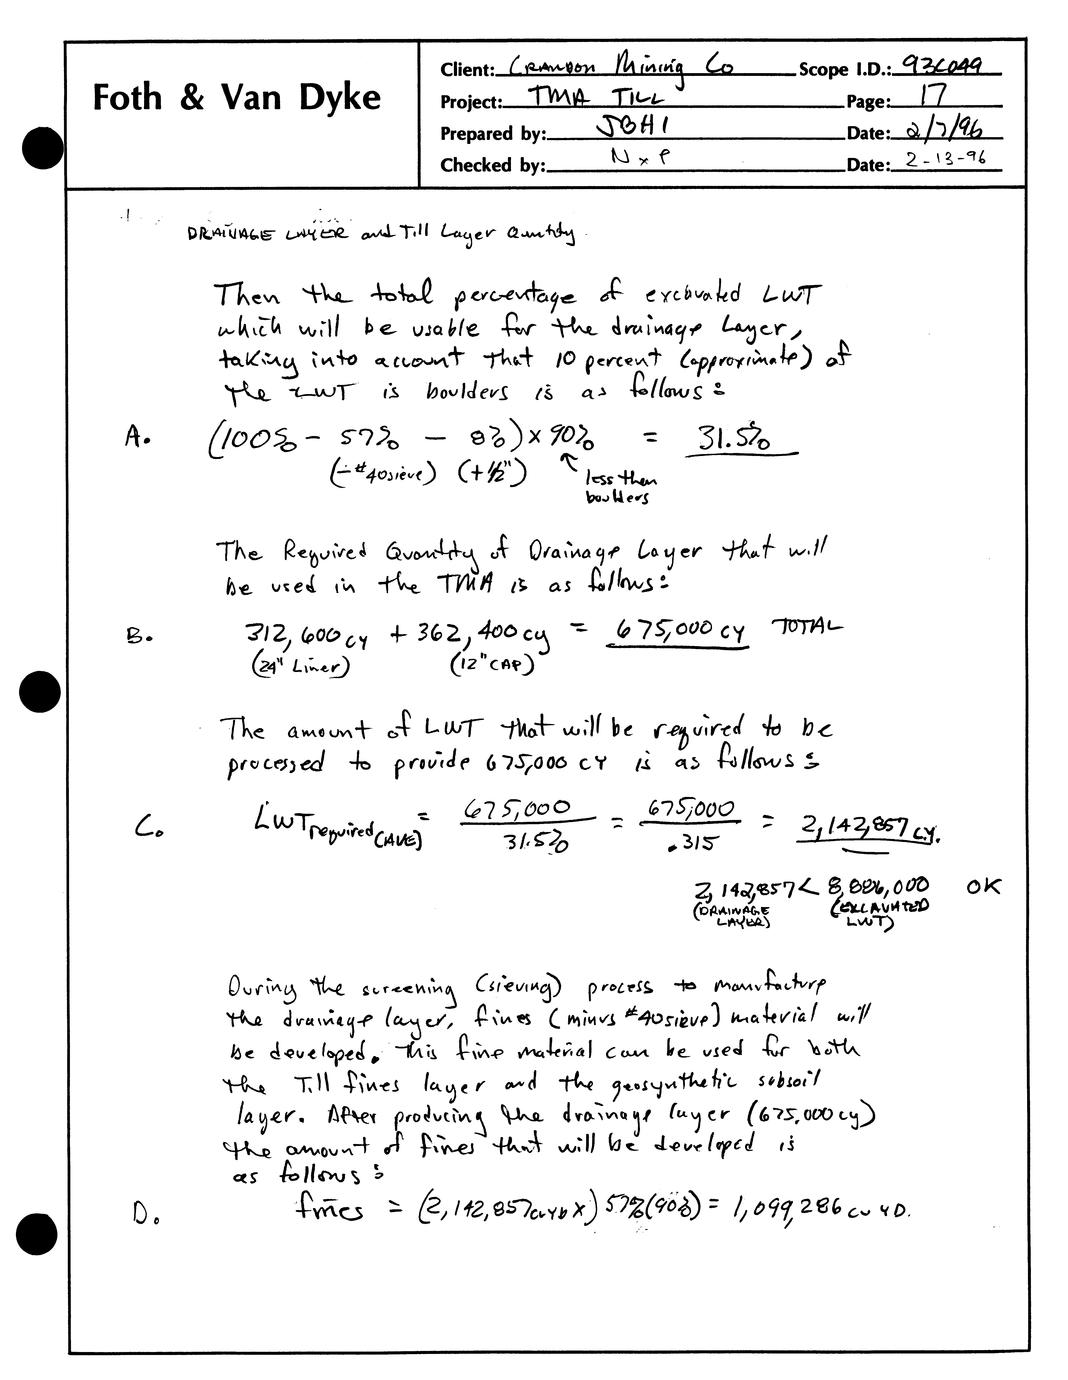 Foth & Van Dyke
Client: Crandon Mining Co Scope I.D.: 93C049
Project: TMA TILL Page: 17
Prepared by: JBH1 Date: 2/7/96
Checked by: NxP Date: 2-13-96
DRAINAGE LAYER and Till Layer Quantity
Then the total percentage of excavated LWT
which will be usable for the drainage Layer,
taking into account that 10 percent (approximate) of
the LWT is boulders is as follows:
A. (100% - 57% - 8%) x 90% = 31.5%
(-#40sieve) (+1½")
less then
boulders
The Required Quantity of Drainage Layer that will
be used in the TMA is as follows:
B. 312,600 cy + 362,400 cy = 675,000 cy TOTAL
(24" Liner) (12" CAP)
The amount of LWT that will be required to be
processed to provide 675,000 CY is as follows:
C. LWT required (AVE) = 675,000 / 31.5% = 675,000 / .315 = 2,142,857 cy.
2,142,857 < 8,886,000 OK
(DRAINAGE LAYER) (EXCAVATED LWT)
During the screening (sieving) process to manufacture
the drainage layer, fines (minus #40sieve) material will
be developed. This fine material can be used for both
the Till fines layer and the geosynthetic subsoil
layer. After producing the drainage layer (675,000 cy)
the amount of fines that will be developed is
as follows:
D. fines = (2,142,857 cuyd x) 57% (90%) = 1,099,286 cu yD.